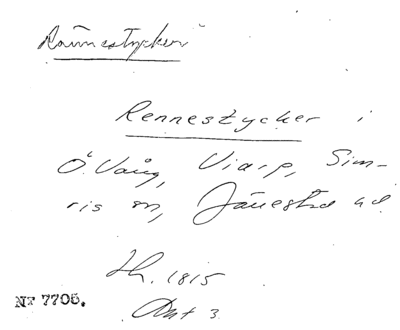 Rännestycken
Rennestycker i
Ö. Vång, Viarp, Sim-
ris m, Järrestad hd
Lh. 1815
Akt 3
Nr 7706.